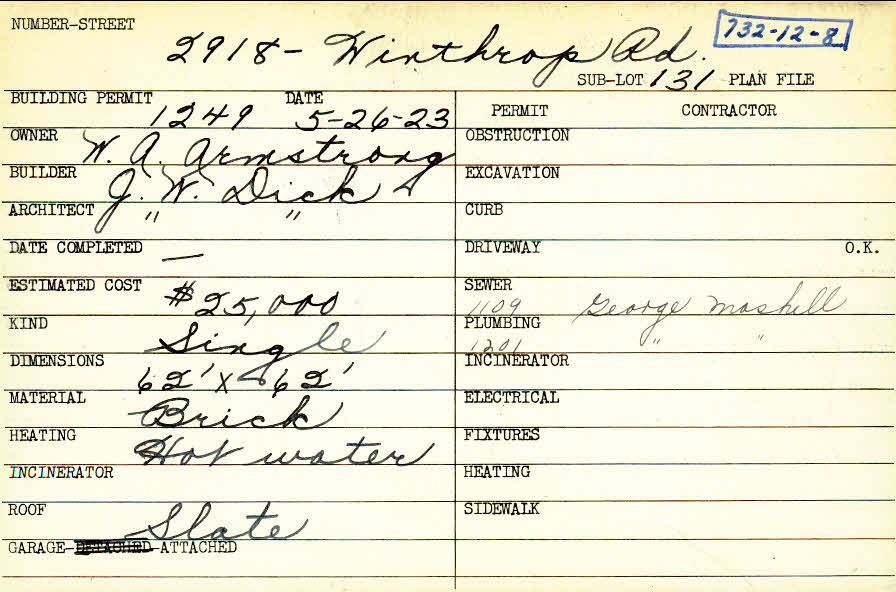 NUMBER-STREET
2918- Winthrop Rd.
732-12-8
SUB-LOT 131 PLAN FILE
BUILDING PERMIT DATE
1249 5-26-23
OWNER
W. A. Armstrong
BUILDER
J. W. Dick
ARCHITECT " "
DATE COMPLETED —
ESTIMATED COST
$25,000
KIND
Single
DIMENSIONS
62' x 62'
MATERIAL
Brick
HEATING
Hot water
INCINERATOR
ROOF
Slate
GARAGE-DETACHED-ATTACHED
PERMIT CONTRACTOR
OBSTRUCTION
EXCAVATION
CURB
DRIVEWAY O.K.
SEWER
1109 George Maskell
PLUMBING
1201 " "
INCINERATOR
ELECTRICAL
FIXTURES
HEATING
SIDEWALK